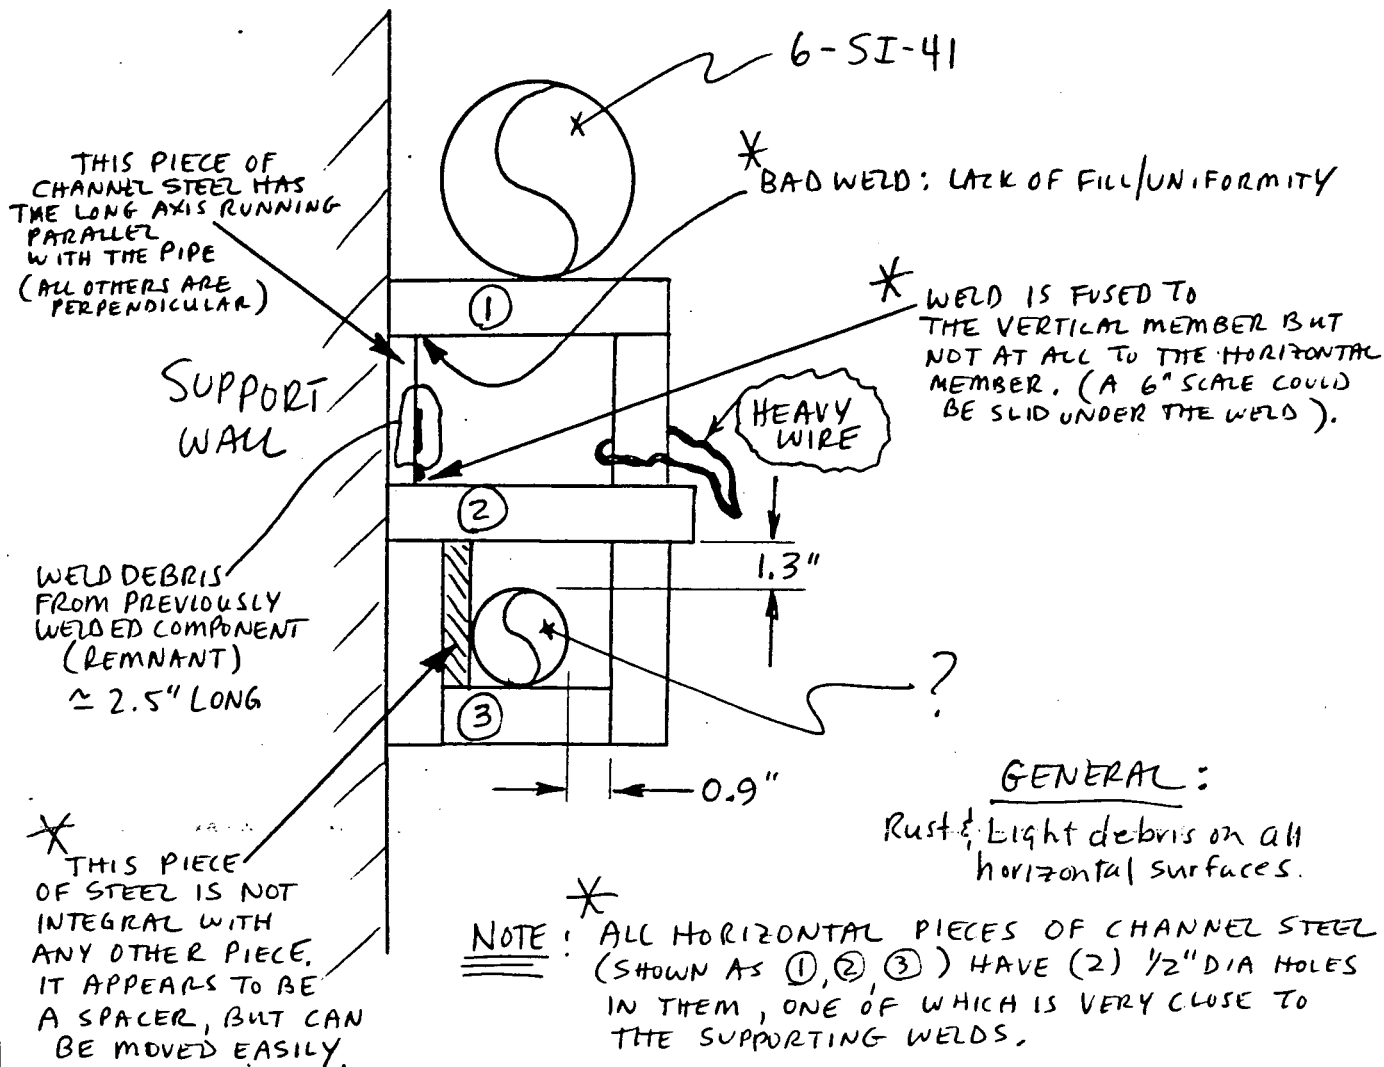 6-SI-41
THIS PIECE OF
CHANNEL STEEL HAS
THE LONG AXIS RUNNING
PARALLEL
WITH THE PIPE
(ALL OTHERS ARE
PERPENDICULAR)
* BAD WELD: LACK OF FILL/UNIFORMITY
* WELD IS FUSED TO
THE VERTICAL MEMBER BUT
NOT AT ALL TO THE HORIZONTAL
MEMBER. (A 6" SCALE COULD
BE SLID UNDER THE WELD).
1
SUPPORT
WALL
HEAVY
WIRE
2
1.3"
WELD DEBRIS
FROM PREVIOUSLY
WELDED COMPONENT
(REMNANT)
≃ 2.5" LONG
?
3
0.9"
GENERAL:
Rust & Light debris on all
horizontal surfaces.
* THIS PIECE
OF STEEL IS NOT
INTEGRAL WITH
ANY OTHER PIECE.
IT APPEARS TO BE
A SPACER, BUT CAN
BE MOVED EASILY.
* NOTE: ALL HORIZONTAL PIECES OF CHANNEL STEEL
(SHOWN AS ①,②,③) HAVE (2) 1/2" DIA HOLES
IN THEM, ONE OF WHICH IS VERY CLOSE TO
THE SUPPORTING WELDS.